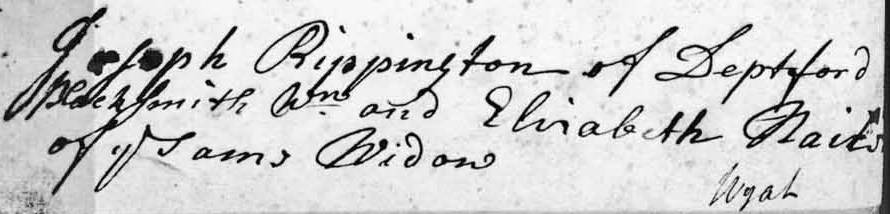 Joseph Rippington of Deptford
Blacksmith Wr. and Elizabeth
of ye Same Widow
Wyat